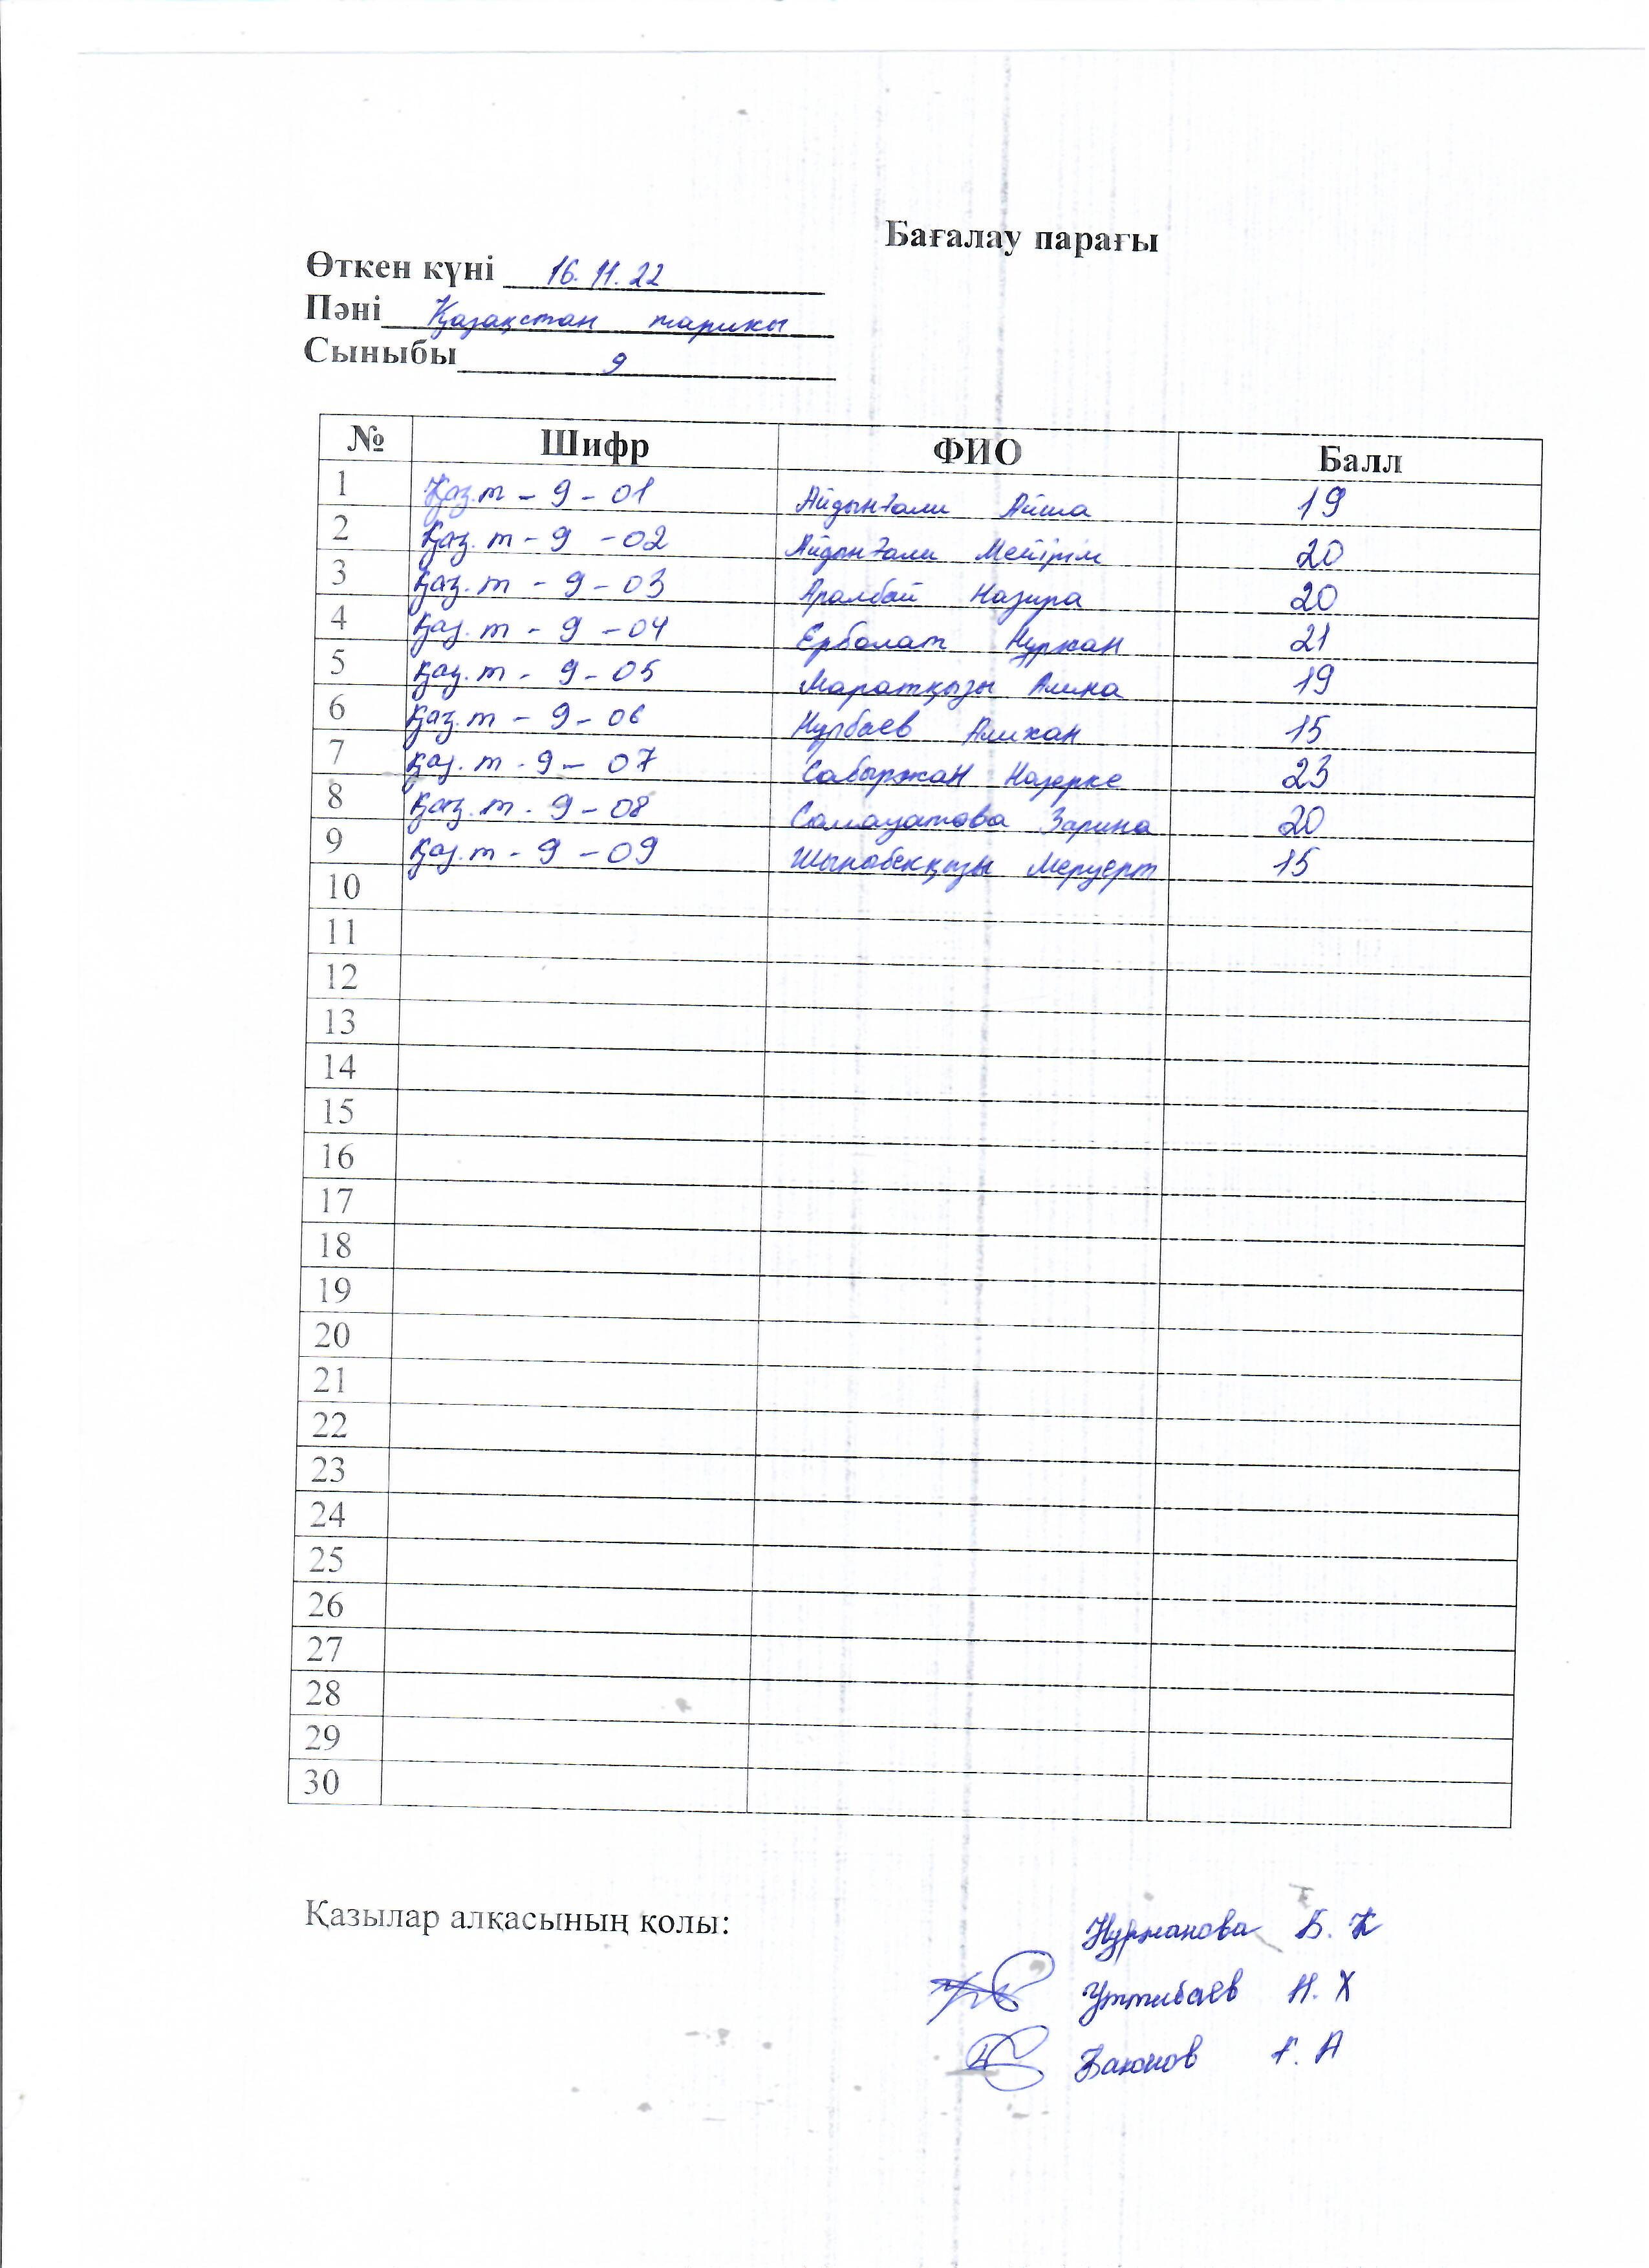 Бағалау парағы
Өткен күні 16.11.22
Пәні Қазақстан тарихы
Сыныбы 9
№ Шифр ФИО Балл
1 Қаз.т - 9 - 01 Айдынғали Айша 19
2 Қаз.т - 9 - 02 Айдынғали Мейірім 20
3 Қаз.т - 9 - 03 Аралбай Назира 20
4 Қаз.т - 9 - 04 Ерболат Нұржан 21
5 Қаз.т - 9 - 05 Маратқызы Алина 19
6 Қаз.т - 9 - 06 Нурбаев Алихан 15
7 Қаз.т - 9 - 07 Сабыржан Назерке 23
8 Қаз.т - 9 - 08 Самауатова Зарина 20
9 Қаз.т - 9 - 09 Шынобекқызы Меруерт 15
10
11
12
13
14
15
16
17
18
19
20
21
22
23
24
25
26
27
28
29
30
Қазылар алқасының қолы:
Нурманова Б. К
Уттибаев Н. Х
А